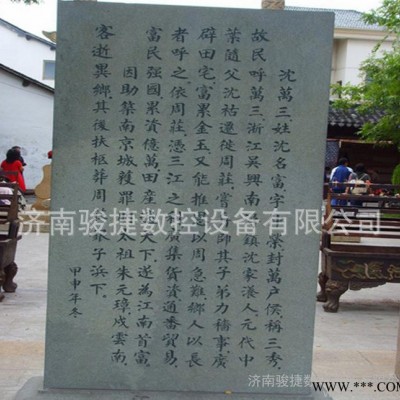 沈萬三姓沈名富字榮封萬户侯稱三秀
故民呼萬三浙江吳興南鎮沈家漾人元代中
葉隨父沈祜遷徙周莊嘗師其子弟力穡事廣
辟田宅富累金玉又能推以周急難鄉人以長
者呼之依周莊憑三江之廣集貨資通番貿易
富民强國累資億萬田産天下遂為江南首富
因助築南京城獲罪太祖朱元璋戍雲南
客逝異鄉其後扶柩葬周子浜下
甲申年冬
济南骏捷数控设备有限公司
济南骏捷数
www.***.com